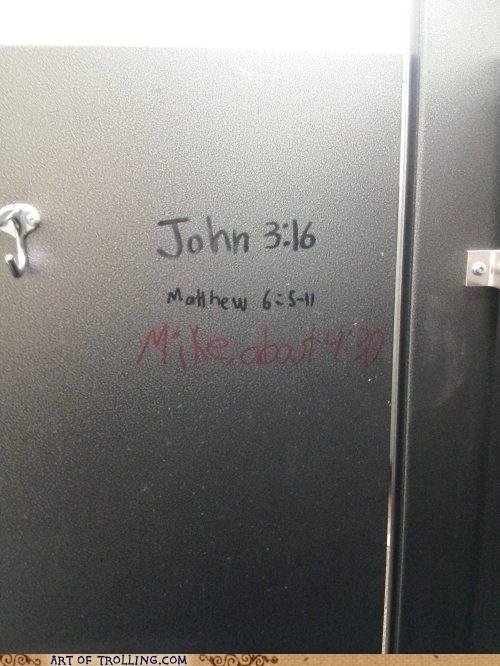 John 3:16
Matthew 6:5-11
Mike, about 4:30
ART OF TROLLING.COM